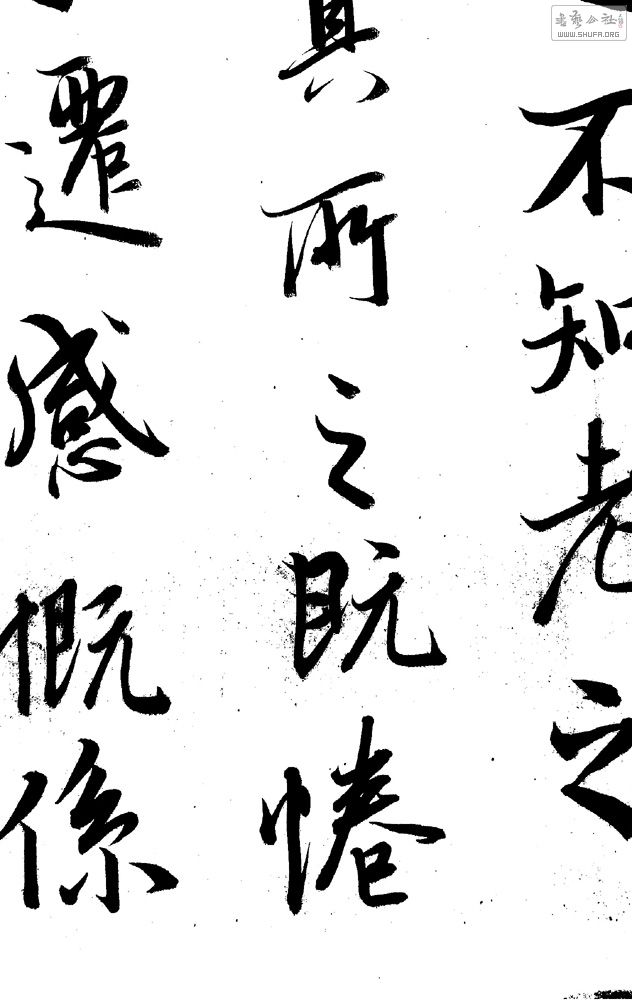 不知老之
其所之既惓
遷感慨係
書藝公社
WWW.SHUFA.ORG